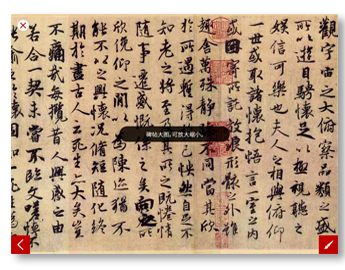 觀宇宙之大俯察品類之盛
所以遊目騁懷足以極視聽之
娛信可樂也夫人之相與俯仰
一世或取諸懷抱悟言一室之內
或因寄所託放浪形骸之外雖
趣舍萬殊靜不同當其欣
於所遇暫得怏然自足不
知老之將至其所之既惓情
隨事遷感慨係之矣向之所
欣俛仰之閒以為陳迹猶不
能不以之興懷況脩短隨化終
期於盡古人云死生亦大矣豈
不痛哉每攬昔人興感之由
若合一契未嘗不臨文嗟悼
碑帖大图，可放大缩小。